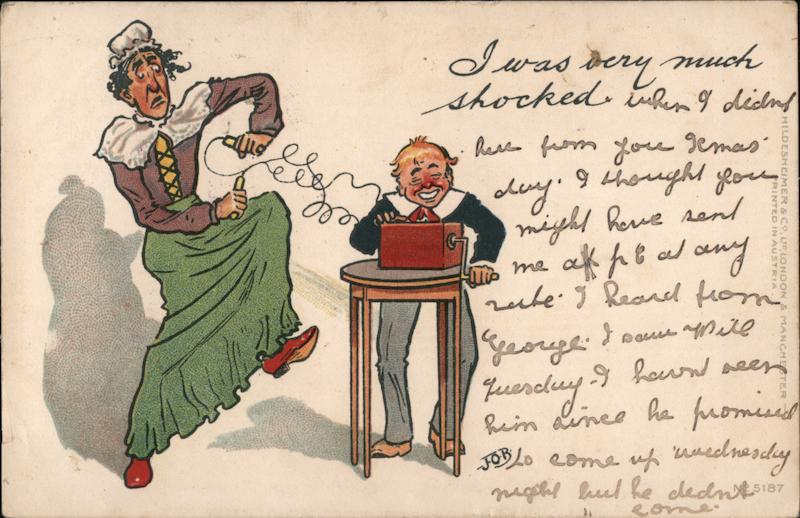 I was very much
shocked. when I didnt
hear from you Xmas
day. I thought you
might have sent
me a p c at any
rate. I heard from
George. I saw Will
Tuesday. I havnt seen
him since he promised
to come up wednesday
night but he didnt
come.
JOB
HILDESHEIMER & Co. LTD. LONDON & MANCHESTER
PRINTED IN AUSTRIA
No 5187